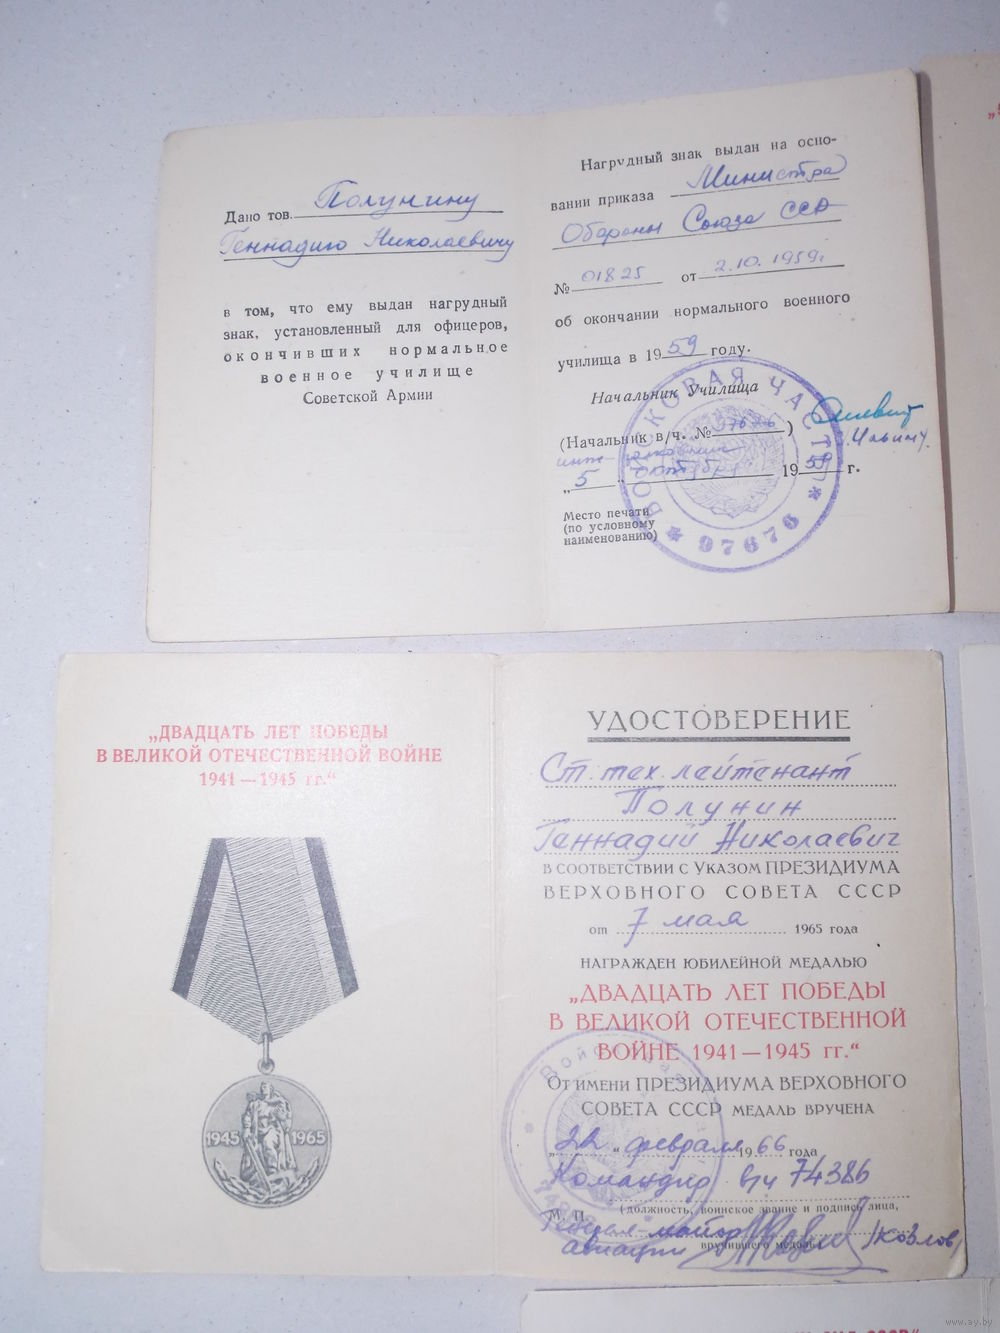 Дано тов. Полунину
Геннадию Николаевичу
в том, что ему выдан нагрудный
знак, установленный для офицеров,
окончивших нормальное
военное училище
Советской Армии
Нагрудный знак выдан на осно-
вании приказа Министра
Обороны Союза ССР
№ 01825 от 2.10.1959г
об окончании нормального военного
училища в 1959 году.
Начальник Училища
(Начальник в/ч. № 97676)
инж- полковник
„5„ октября 1959 г.
Место печати
(по условному
наименованию)
ВОЙСКОВАЯ ЧАСТЬ
* 97676 *
„ДВАДЦАТЬ ЛЕТ ПОБЕДЫ
В ВЕЛИКОЙ ОТЕЧЕСТВЕННОЙ ВОЙНЕ
1941—1945 гг.“
1945 1965
УДОСТОВЕРЕНИЕ
Ст. тех. лейтенант
Полунин
Геннадий Николаевич
В СООТВЕТСТВИИ С УКАЗОМ ПРЕЗИДИУМА
ВЕРХОВНОГО СОВЕТА СССР
от 7 мая 1965 года
НАГРАЖДЕН ЮБИЛЕЙНОЙ МЕДАЛЬЮ
„ДВАДЦАТЬ ЛЕТ ПОБЕДЫ
В ВЕЛИКОЙ ОТЕЧЕСТВЕННОЙ
ВОЙНЕ 1941—1945 гг.“
ОТ ИМЕНИ ПРЕЗИДИУМА ВЕРХОВНОГО
СОВЕТА СССР МЕДАЛЬ ВРУЧЕНА
„22“ февраля 1966 года
Командир в/ч 74386
(должность, воинское звание и подпись лица,
М. П.
Генерал-майор /Козлов/
авиации вручившего медаль)
www.ay.by